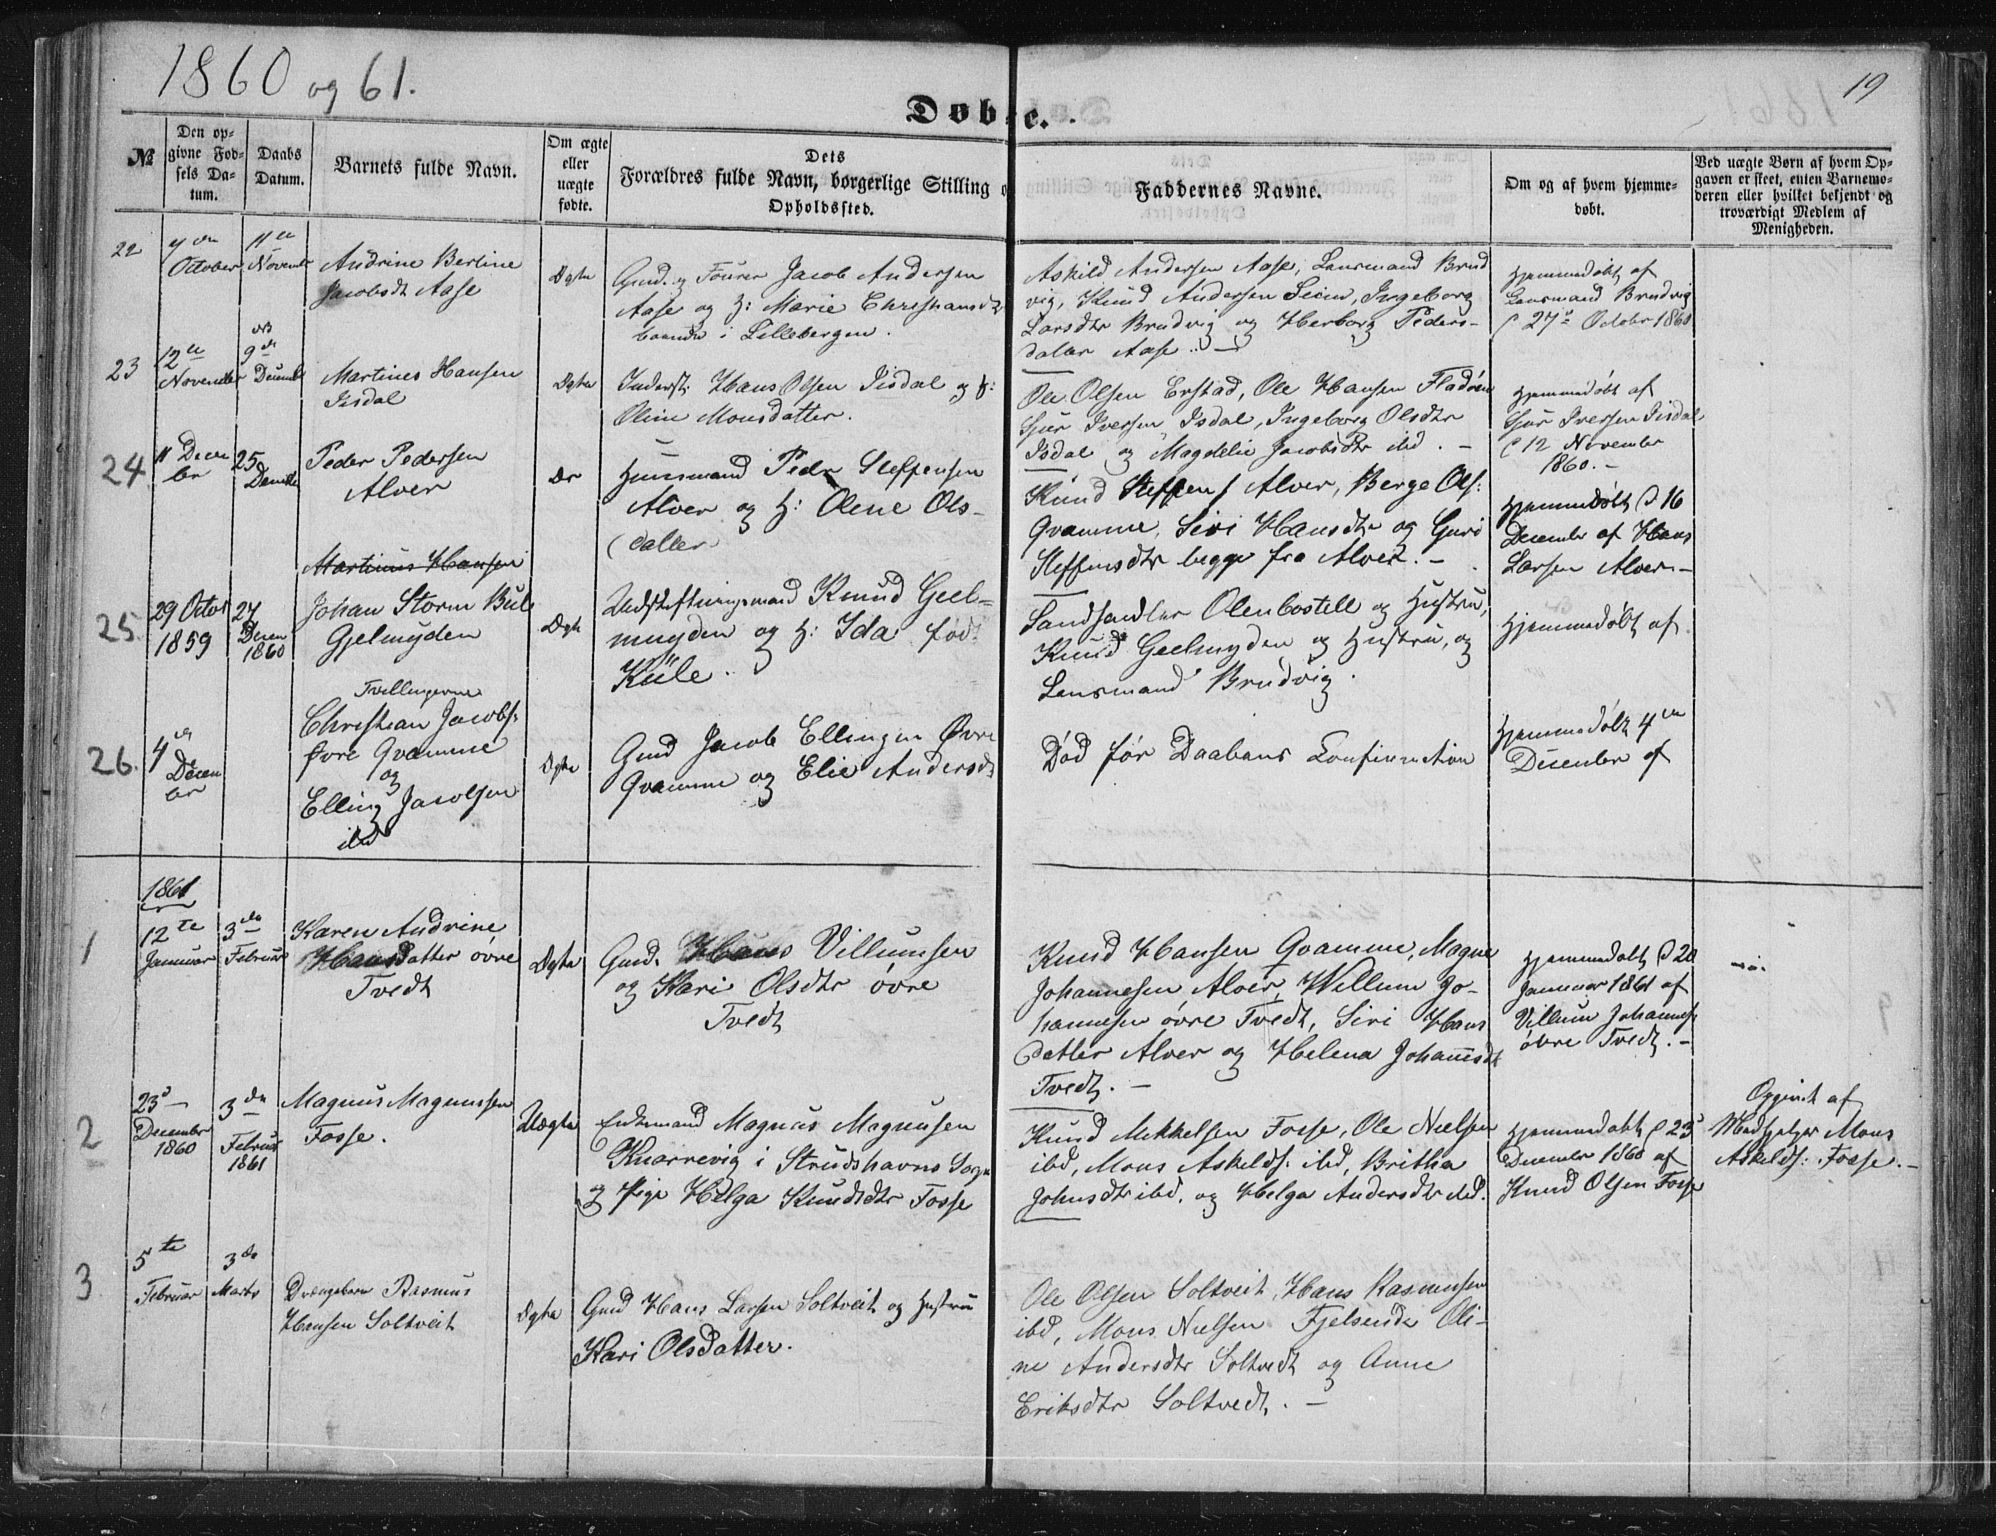 1860 og 61.
19
Døbte.
№
Den op-
givne Fød-
sels Da-
tum.
Daabs
Datum.
Barnets fulde Navn.
Om ægte
eller
uægte
fødte.
Dets
Forældres fulde Navn, borgerlige Stilling o
Opholdssted.
Faddernes Navne.
Om og af hvem hjemme-
døbt.
Ved uægte Børn af hvem Op-
gaven er skeet, enten Barnemo-
deren eller hvilket bekjendt og
troværdigt Medlem af
Menigheden.
22
October
11te
Novemb
Andrine Berline
Jacobsdt Aase
Ægte
Gmd. og Fourer Jacob Andersen
Aase og H: Marie Christiansdtr
boende i Lillebergen.
Askild Andersen Aase, Lensmand Brud
vig, Knud Andersen Seim, Ingeborg
Larsdtr Brudvig og Herborg Peders-
datter Aase. —
Hjemmedøbt af
Lensmand Brudvig
d 27de October 1860
23
12te
November
9de
Decemb
Martines Hansen
Isdal
Ægte
Inderst: Hans Olsen Isdal og H:
Oline Monsdatter.
Ole Olsen Erstad, Ole Hansen Fladøen
Sjur Iversen Isdal, Ingeborg Olsdtr
Isdal og Magdelie Jacobsdtr ibd. —
Hjemmedøbt af
Sjur Iversen Isdal
d 12 November
1860. —
24.
11 Decem
ber
25
Decemb
Peder Pedersen
Alver
Huusmand Peder Steffensen
Alver og H: Olene Ols-
datter
Knud Steffens Alver, Berge Ols:
Qvamme, Siri Hansdtr og Guri
Steffensdtr begge fra Alver. —
Hjemmedøbt d 16
December af Hans
Larsen Alver —
Martinus Hansen
25.
29 Octor
1859
27
Decem
1860
Johan Storm Bull
Gjelmyden
Ægte
Udskiftningsmand Knud Geel-
muyden og H: Ida fød:
Küle.
Landhandler Olenbostell og Hustru,
Knud Geelmyden og Hustru, og
Lensmand Brudvig.
Hjemmedøbt af
26.
4de
Decem
ber
Tvillingerne
Christian Jacobs:
Øvre Qvamme
og
Elling Jacobsen
ibd
Ægte
Gmd Jacob Ellingsen Øvre
Qvamme og Elie Andersdt
Død før Daabens Confirmation
Hjemmedøbt 4de
December af
1861
1
12te
Januar
3de
Februar
Karen Andrine
Hansdatter øvre
Tvedt
Ægte
Gmd. Hans Villumsen
og Kari Olsdtr øvre
Tvedt
Knud Hansen Qvamme, Magne
Johannesen Alver, Willum Jo-
hannesen øvre Tvedt, Siri Hans
datter Alver og Helena Johannsdt
Tvedt. —
Hjemmedøbt d 20
Januar 1861 af
Villum Johannes:
øvre Tvedt. —
2
23de
December
1860
3de
Februar
1861
Magnus Magnussen
Fosse.
Uægte
Enkemand Magnus Magnusen
Knarrevig i Strudshavns Sogn
og Pige Helga Knudsdtr Fosse
Knud Mikkelsen Fosse, Ole Nielsen
ibd, Mons Askelds: ibd, Britha
Johnsdtr ibd. og Helga Andersdtr ibd.
Hjemmedøbt d 23de
December 1860 af
Knud Olsen Fosse
Opgivet af
Medhjelper Mons
Askelds: Fosse. —
3
5te
Februar
3de
Marts
Drængebarn Rasmus
Hansen Soltveit
Ægte
Gmd Hans Larsen Soltveit og Hustru
Kari Olsdatter.
Ole Olsen Soltveit, Hans Rasmusen
ibd, Mons Nielsen Fjelsende Oli-
ne Andersdtr Soltvedt og Anne
Eriksdtr Soltvedt. —